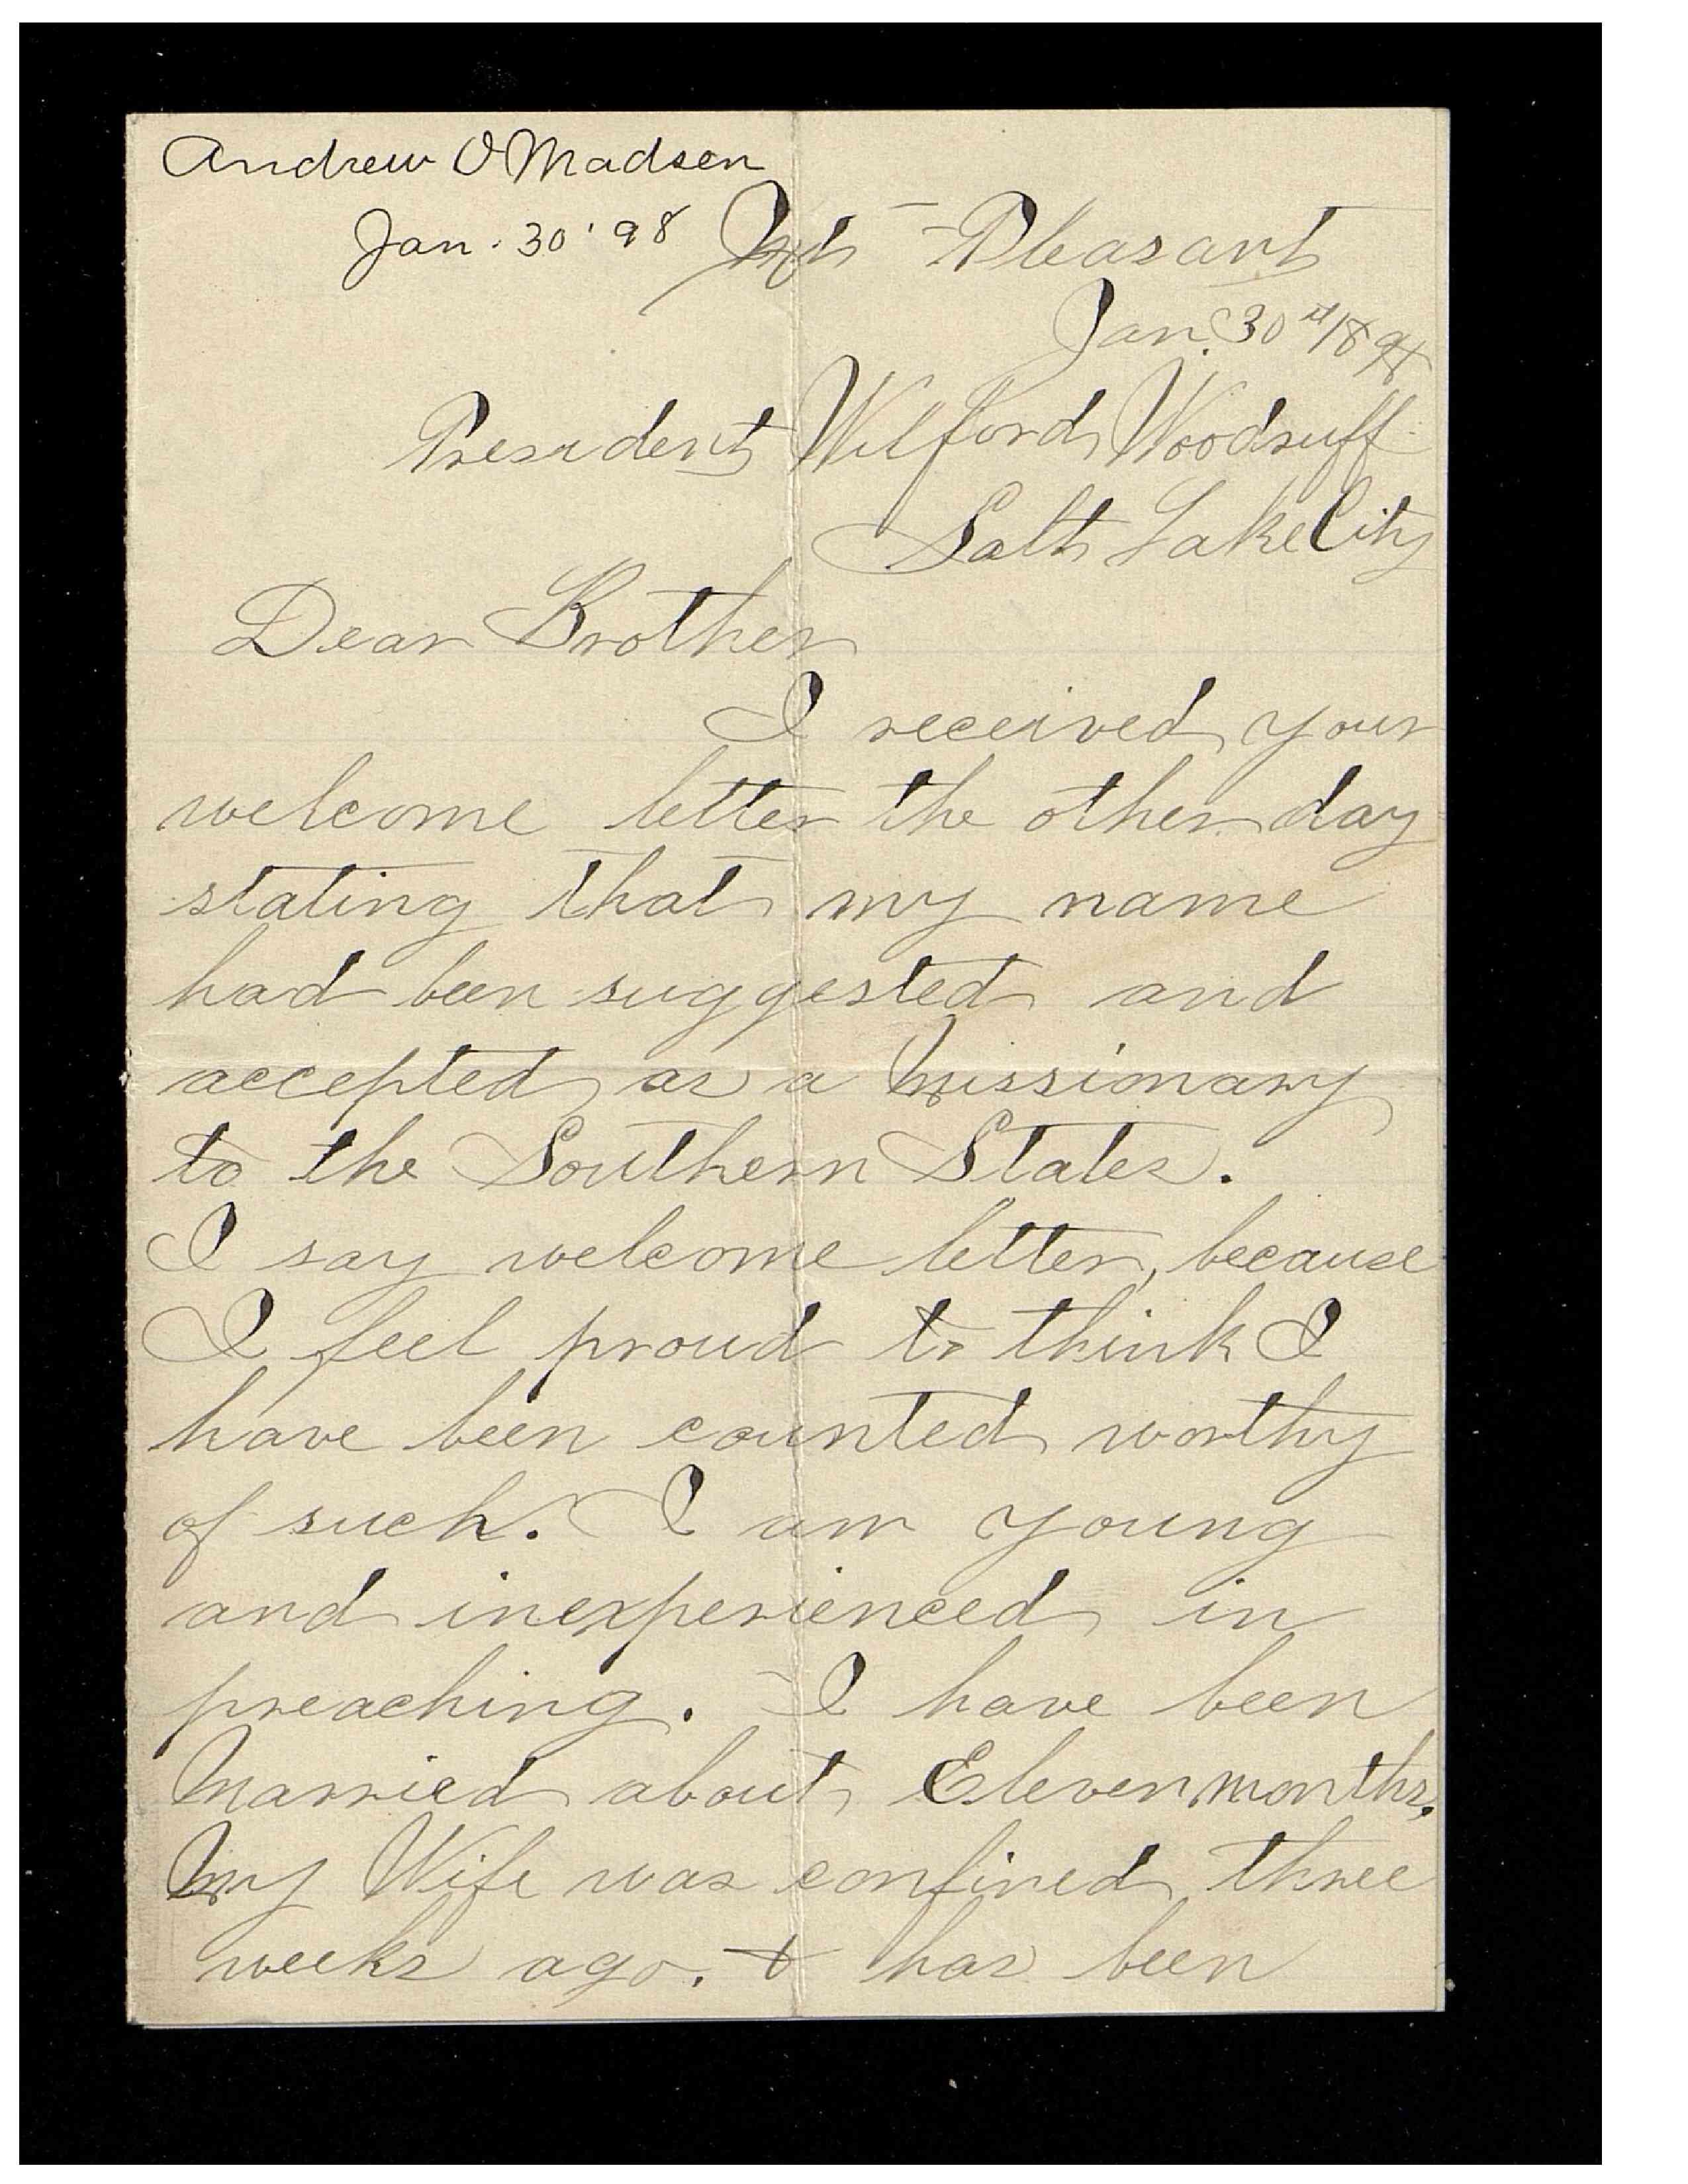 Andrew O Madsen
Jan. 30 '98
Mt Pleasant
Jan. 30st/1898
President Wilford Woodruff
Salt Lake City
Dear Brother
I received your
welcome letter the other day
stating that my name
had been suggested and
accepted as a Missionary
to the Southern States.
I say welcome letter, because
I feel proud to think I
have been counted worthy
of such. I am young
and inexperienced in
preaching. I have been
Married about Eleven months.
My Wife was confined three
weeks ago. & has been